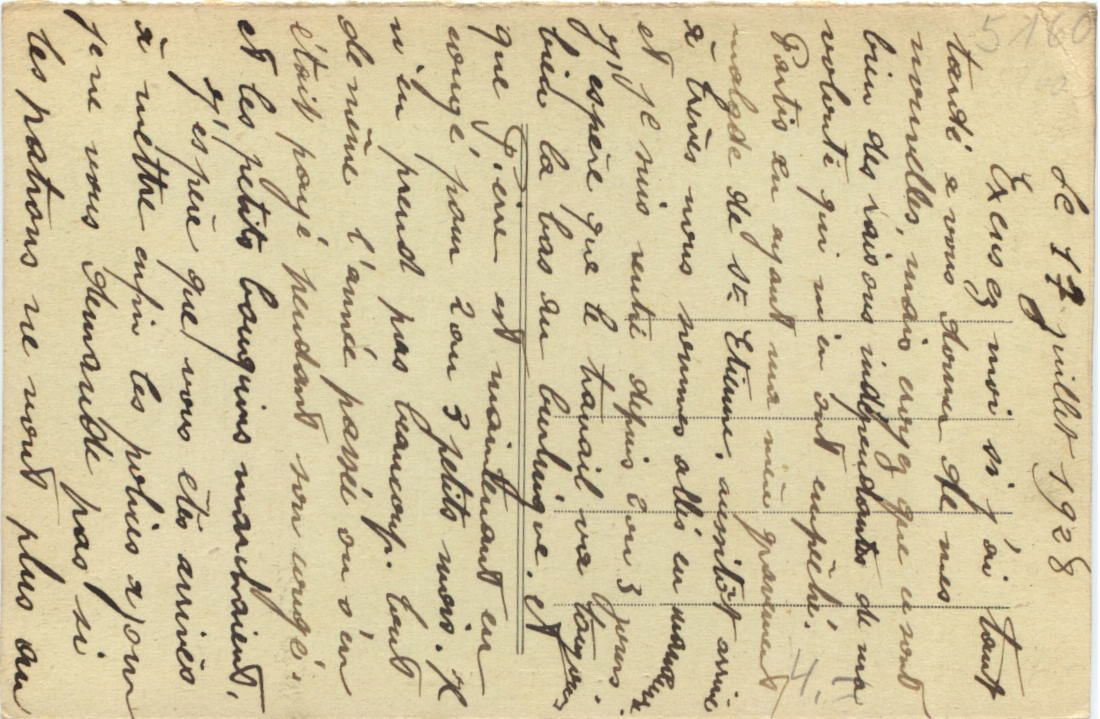 5160
Le 17 juillet 1928
Excusez moi si j'ai tant
tardé a vous donner de mes
nouvelles, mais croyez que ce sont
bien des raisons indépendantes de ma
volonté qui m'en ont empêché.
Partis en ayant ma mère gravement
malade de St. Etienne, aussitôt arrivé
à Trèves nous sommes allés en
et je suis rentré depuis 2 ou 3 jours.
J'espère que le travail va toujours
bien la bas au burlingue. et
que Pierre est maintenant en
congé pour 2 ou 3 petits mois. Il
n'en prend pas beaucoup. tout
de même l'année passée on s'en
était payé pendant son congé.
et les petits bouquins marchaient.
J'espère que vous êtes arrivés
à mettre enfin les polices a jour
je ne vous demande pas si
les patrons ne sont plus au
4.